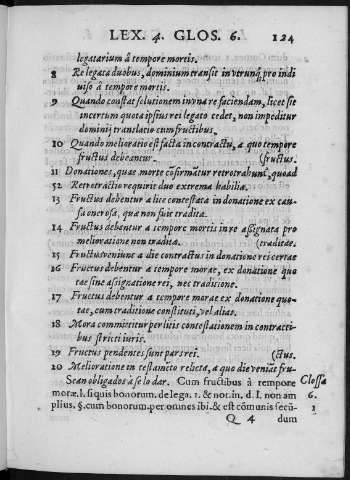 LEX. 4. GLOS. 6. 124
legatarium à tempore mortis.
8 Re legata duobus, dominium transit in utrunq; pro indi
uiso à tempore mortis.
9 Quando constat solutionem in vna re faciendam, licet sit
incertum quota ipsius rei legato cedet, non impeditur
dominij translatio cum fructibus.
10 Quando melioratio est facta in contractu, a quo tempore
fructus debeantur. (fructus.
11 Donationes, quae morte cõfirmãtur retrotrahunt, quoad
52 Retrotractio requirit duo extrema habilia.
13 Fructus debentur a lite contestata in donatione ex cau-
sa onerosa, quae non fuit tradita.
14 Fructus debentur a tempore mortis in re assignata pro
melioratione non tradita. (traditae.
15 Fructus veniunt a die contractus in donatione rei certae
16 Fructus debentur a tempore morae, ex donatione quo
tae sine assignatione rei, nec traditione.
17 Fructus debentur a tempore morae ex donatione quo-
tae, cum traditione constituti, vel alias.
18 Mora committitur per litis contestationem in contracti-
bus stricti iuris.
19 Fructus pendentes sunt pars rei. (ctus.
20 Melioratione in testamento relicta, a quo die veniãt fru-
Sean obligados à se lo dar. Cum fructibus à tempore Glossa
morae. l. si quis bonorum. de lega. 1. & not. in. d. l. non am 6.
plius. §. cum bonorum. per omnes ibi. & est cõmunis secũ- 1
Q 4 dum